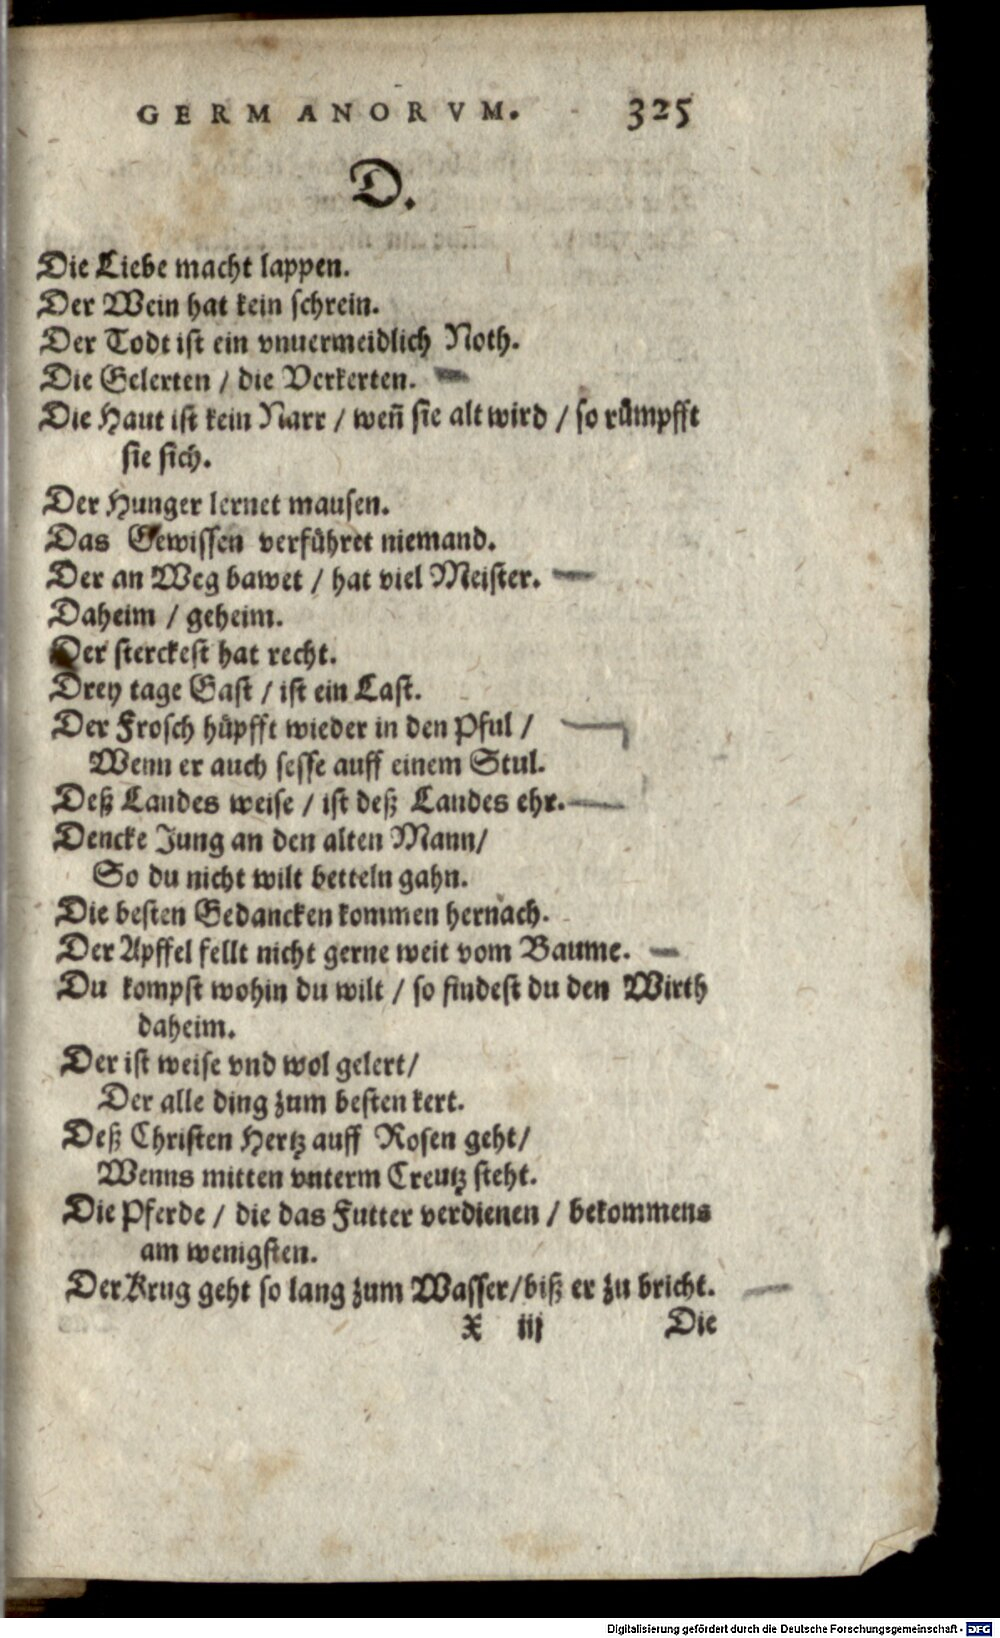 GERMANORVM. 325
D.
Die Liebe macht lappen.
Der Wein hat kein schrein.
Der Todt ist ein vnuermeidlich Noth.
Die Gelerten / die Verkerten.
Die Haut ist kein Narr / weñ sie alt wird / so rümpfft
sie sich.
Der Hunger lernet mausen.
Das Gewissen verführet niemand.
Der an Weg bawet / hat viel Meister.
Daheim / geheim.
Der sterckest hat recht.
Drey tage Gast / ist ein Last.
Der Frosch hüpfft wieder in den Pful /
Wenn er auch sesse auff einem Stul.
Deß Landes weise / ist deß Landes ehr.
Dencke Jung an den alten Mann/
So du nicht wilt betteln gahn.
Die besten Gedancken kommen hernach.
Der Apffel fellt nicht gerne weit vom Baume.
Du kompst wohin du wilt / so findest du den Wirth
daheim.
Der ist weise vnd wol gelert/
Der alle ding zum besten kert.
Deß Christen Hertz auff Rosen geht/
Wenns mitten vnterm Creutz steht.
Die Pferde / die das Futter verdienen / bekommens
am wenigsten.
Der Krug geht so lang zum Wasser/biß er zu bricht.
X iij Die
Digitalisierung gefördert durch die Deutsche Forschungsgemeinschaft - DFG